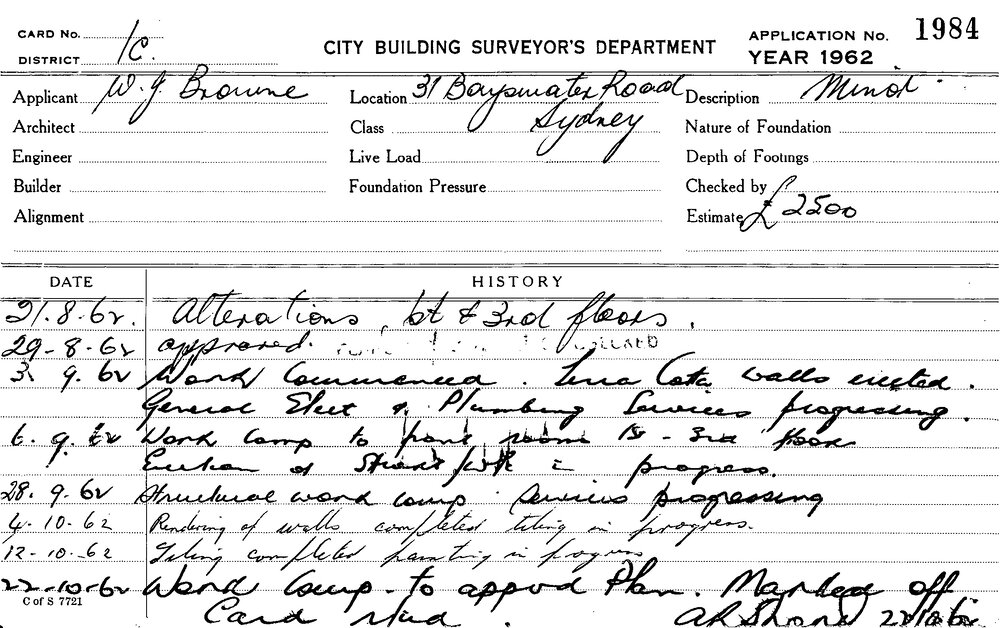 CARD No. 1C.
DISTRICT
CITY BUILDING SURVEYOR'S DEPARTMENT
APPLICATION No. 1984
YEAR 1962
Applicant W. J. Browne Location 31 Bayswater Road Description Minor
Architect Class Sydney Nature of Foundation
Engineer Live Load Depth of Footings
Builder Foundation Pressure Checked by
Alignment Estimate £ 2500
DATE HISTORY
21.8.62. Alterations, 1st & 3rd floors.
29-8-62 approved.
3. 9. 62 Work Commenced. Terra Cotta walls erected.
General Elect & Plumbing Services progressing.
6. 9. 62 Work Comp to front rooms 1st - 3rd floor
Erection of in progress.
28. 9. 62 Structural work comp. Services progressing
4-10-62 Rendering of walls completed tiling in progress.
12-10-62 Tiling completed painting in progress
22-10-62 Work Comp. to appvd Plan. Marked off
Card 22/10/62
C of S 7721